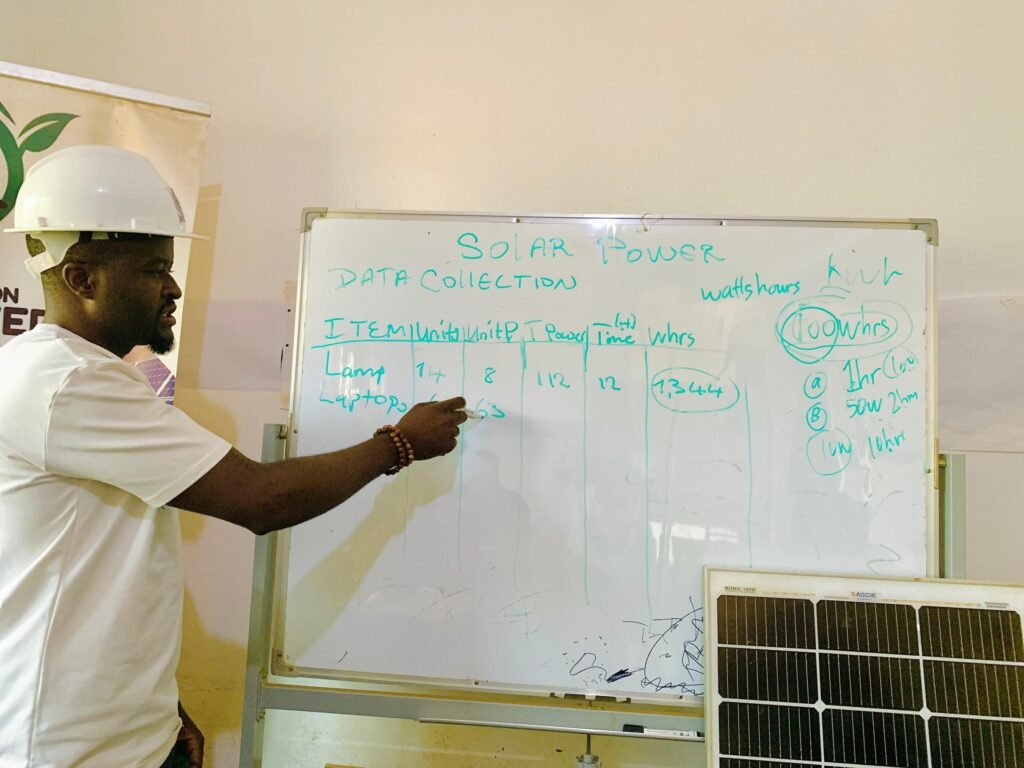 ON
SOLAR POWER
DATA COLLECTION
watts hours
ITEM Units UnitP T Power Time (H) Whrs
Lamp 14 8 112 12 1,344
Laptops 63
100 whrs
a 1hr (100)
B 50W 2hrs
10W 10hr
MONO, 100W